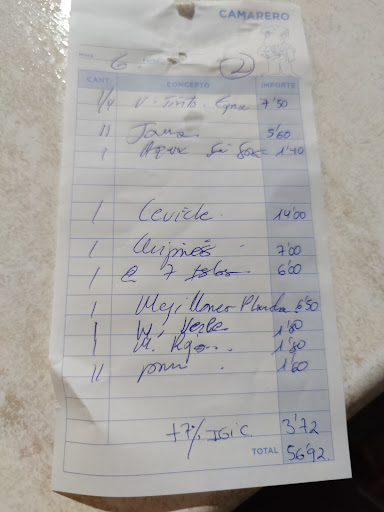 CAMARERO
MESA 6 2
CANT. CONCEPTO IMPORTE
1/4 V. Tinto 7'50
11 5'60
1 Agua Sin 1'40
1 Ceviche 14'00
1 7'00
1 7 6'00
1 Mejillones Plancha 6'50
1 M. Verde 1'80
1 M. Rojo 1'80
11 pan 1'60
+7% IGIC 3'72
TOTAL 56'92